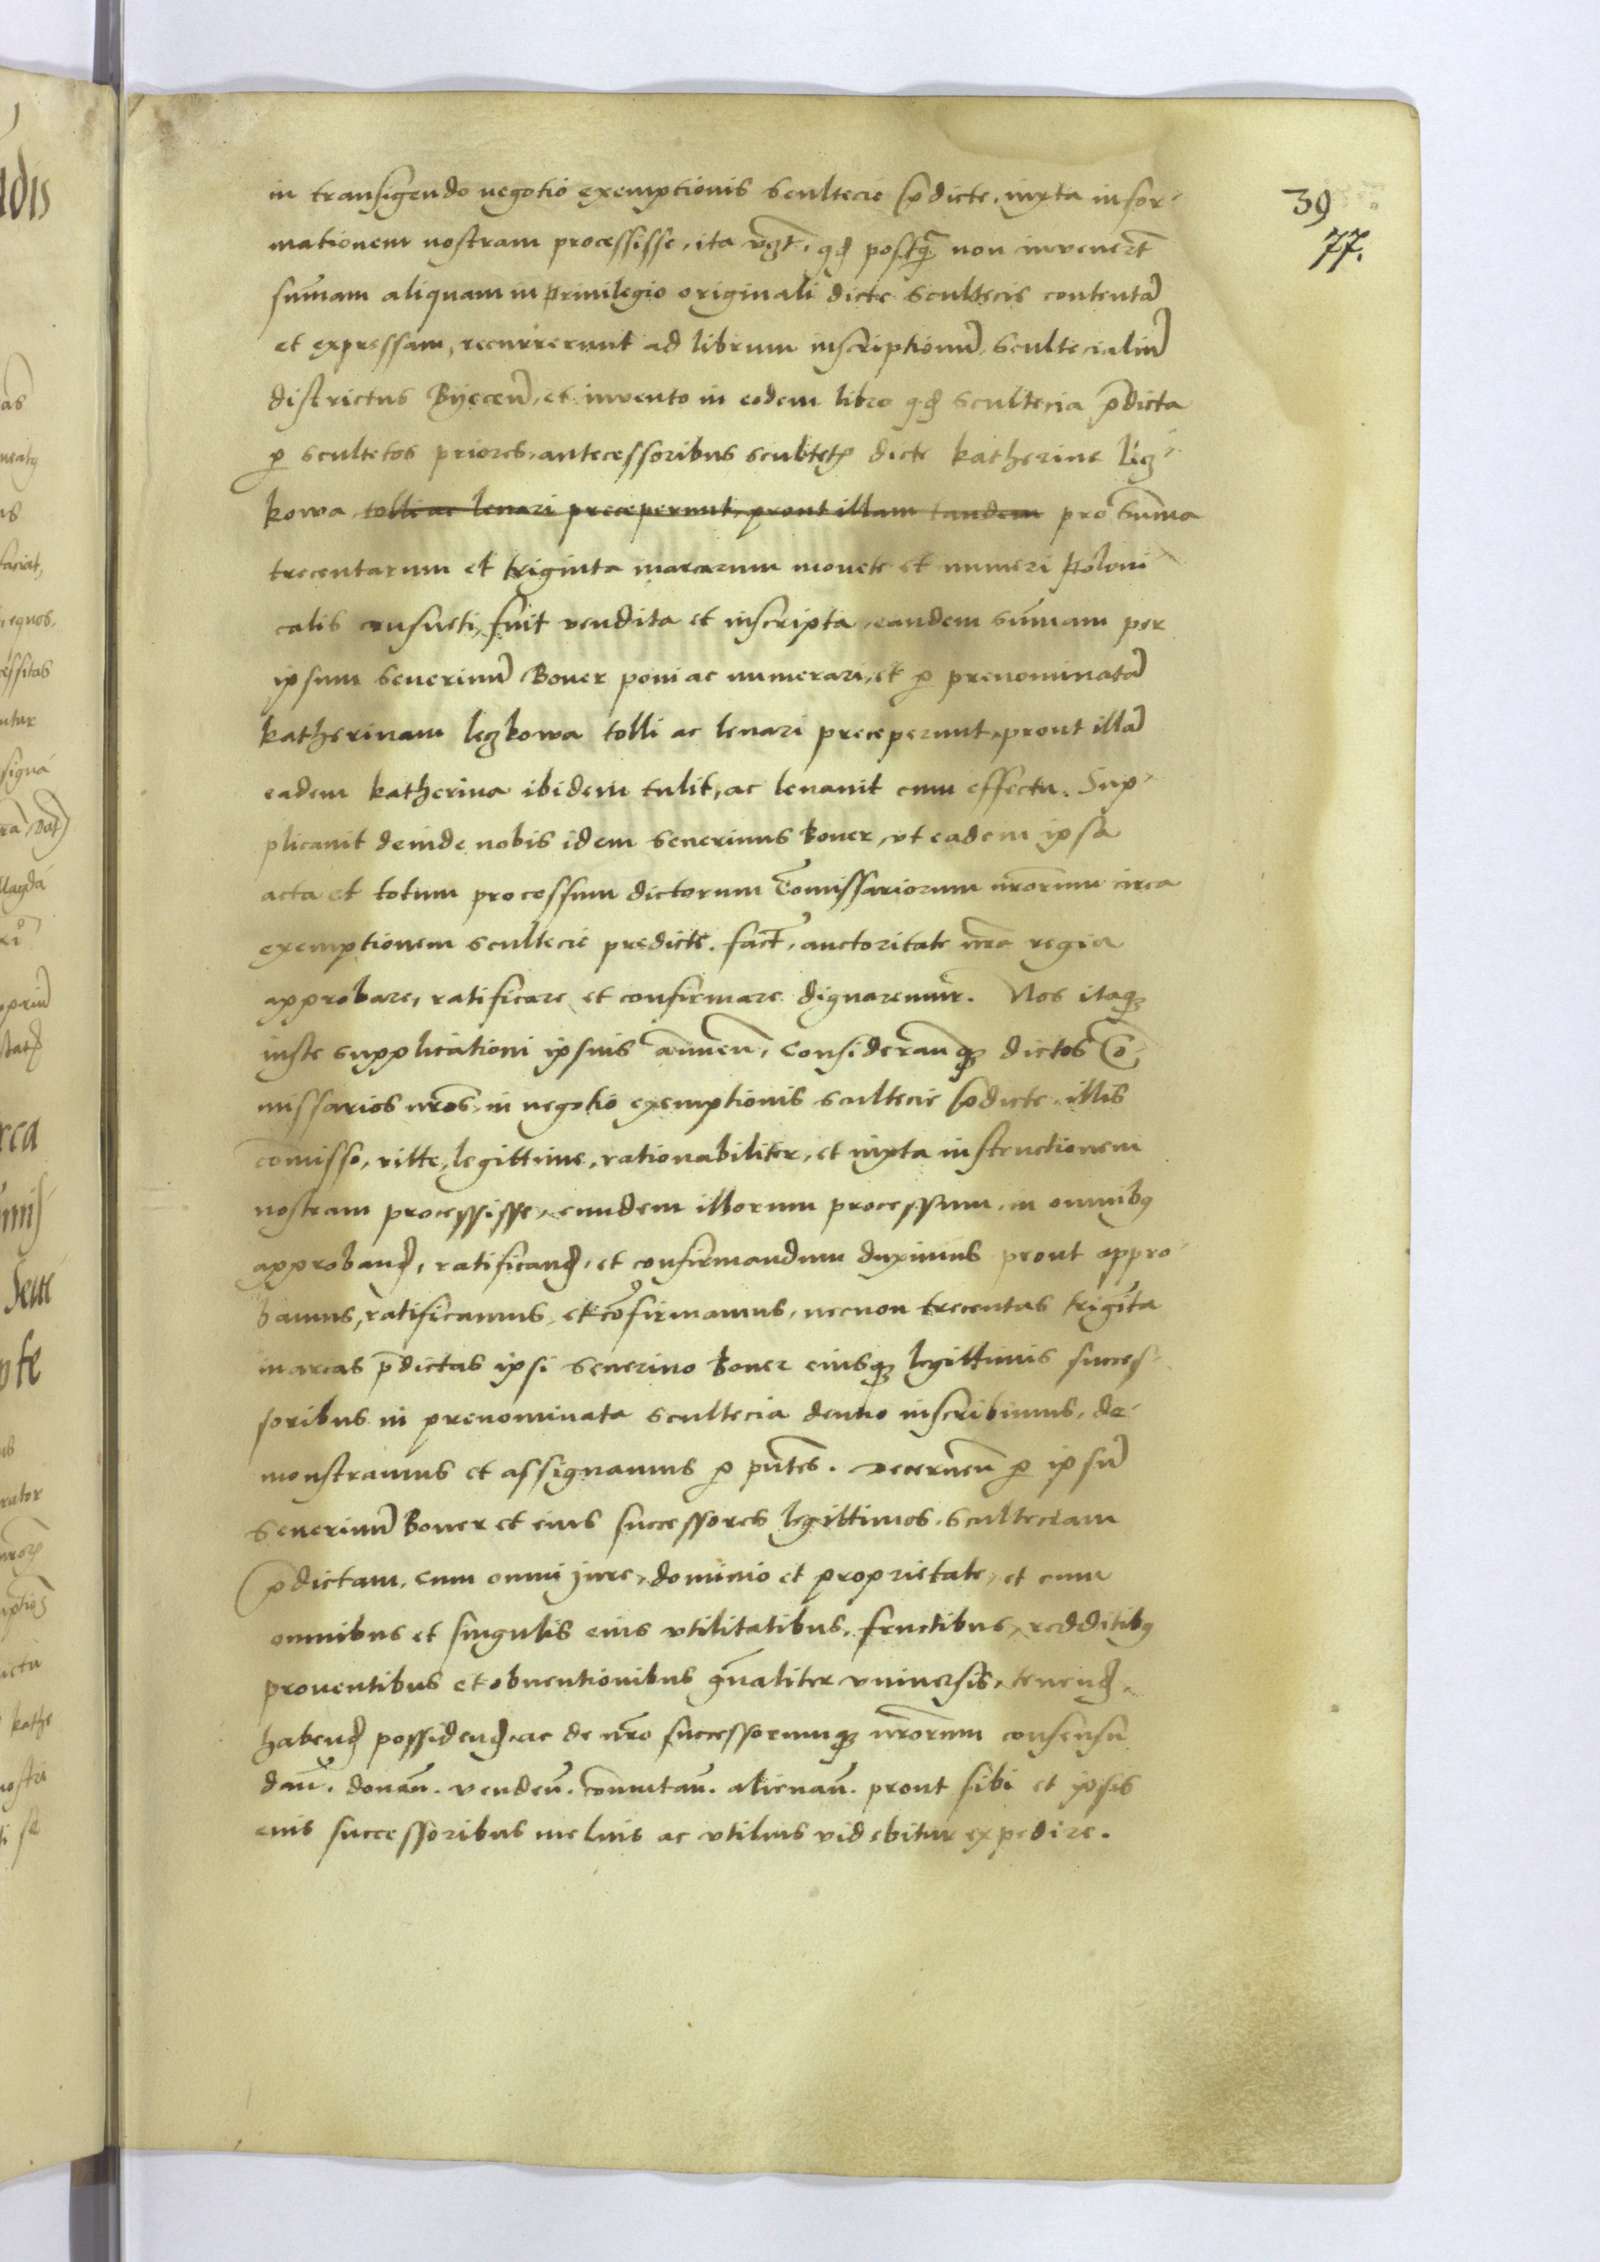 39
77.
in transigendo negotio exemptionis scultecie p̄dicte, iuxta infor-
mationem nostram processisse, ita qd postq̄ non invenert
sum̄am aliquam in privilegio originali dicte scultecie contentā
et expressam, recurrerunt ad librum inscriptionū scultecialiū
districtus Byecen̄, et invento in eodem libro qd scultecia p̄dicta
p scultetos priores, antecessoribus dicte katherine Lig-
kowa tolli ac levari preceperunt, prout illam tandem pro sum̄a
trecentarum et triginta marcarum monete et numeri Poloni-
calis consueti, fuit vendita et inscripta, eandem sum̄am per
ipsum Severinū Boner poni ac numerari, et p prenominatā
katherinam legkowa tolli ac levari preceperunt, prout illā
eadem katherina ibidem tulit, ac levavit cum effectu. Sup-
plicavit deinde nobis idem Severinus Boner, vt eadem ipsa
acta et totum processum dictorum Com̄issariorum nr̄orum circa
exemptionem scultecie predicte. fact̄, auctoritate nr̄a regia
approbare, ratificare et confirmare dignaremur. Nos itaq
iuste supplicationi ipsius annuen̄, Considerānq dictos Cō-
missarios nr̄os, in negotio exemptionis scultecie p̄dicte illis
com̄isso, ritte, legittime, rationabiliter, et iuxta instructionem
nostram processisse, eundem illorum processum, in omnibq
approband, ratificand, et confirmandum duximus prout appro-
bamus, ratificamus, et cōfirmamus, necnon trecentas trigīta
marcas p̄dictas ipsi Severino Boner eiusq legittimis succes-
soribus in prenominata scultecia denuo inscribimus, de-
monstramus et assignamus p pn̄tes. Decernen̄ p ipsū
Severinū Boner et eius successores legittimos, sculteciam
p̄dictam, cum omni jure, dominio et proprietate, et cum
omnibus et singulis eius vtilitatibus, fructibus, redditibq
proventibus et obventionibus gn̄aliter vniversis, tenend,
habend possidend, ac de nr̄o successorumq nr̄orum consensu
dan̄. donan̄. venden̄. com̄utan̄. alienan̄. prout sibi et ipsis
eius successoribus melius ac vtilius videbitur expedire.